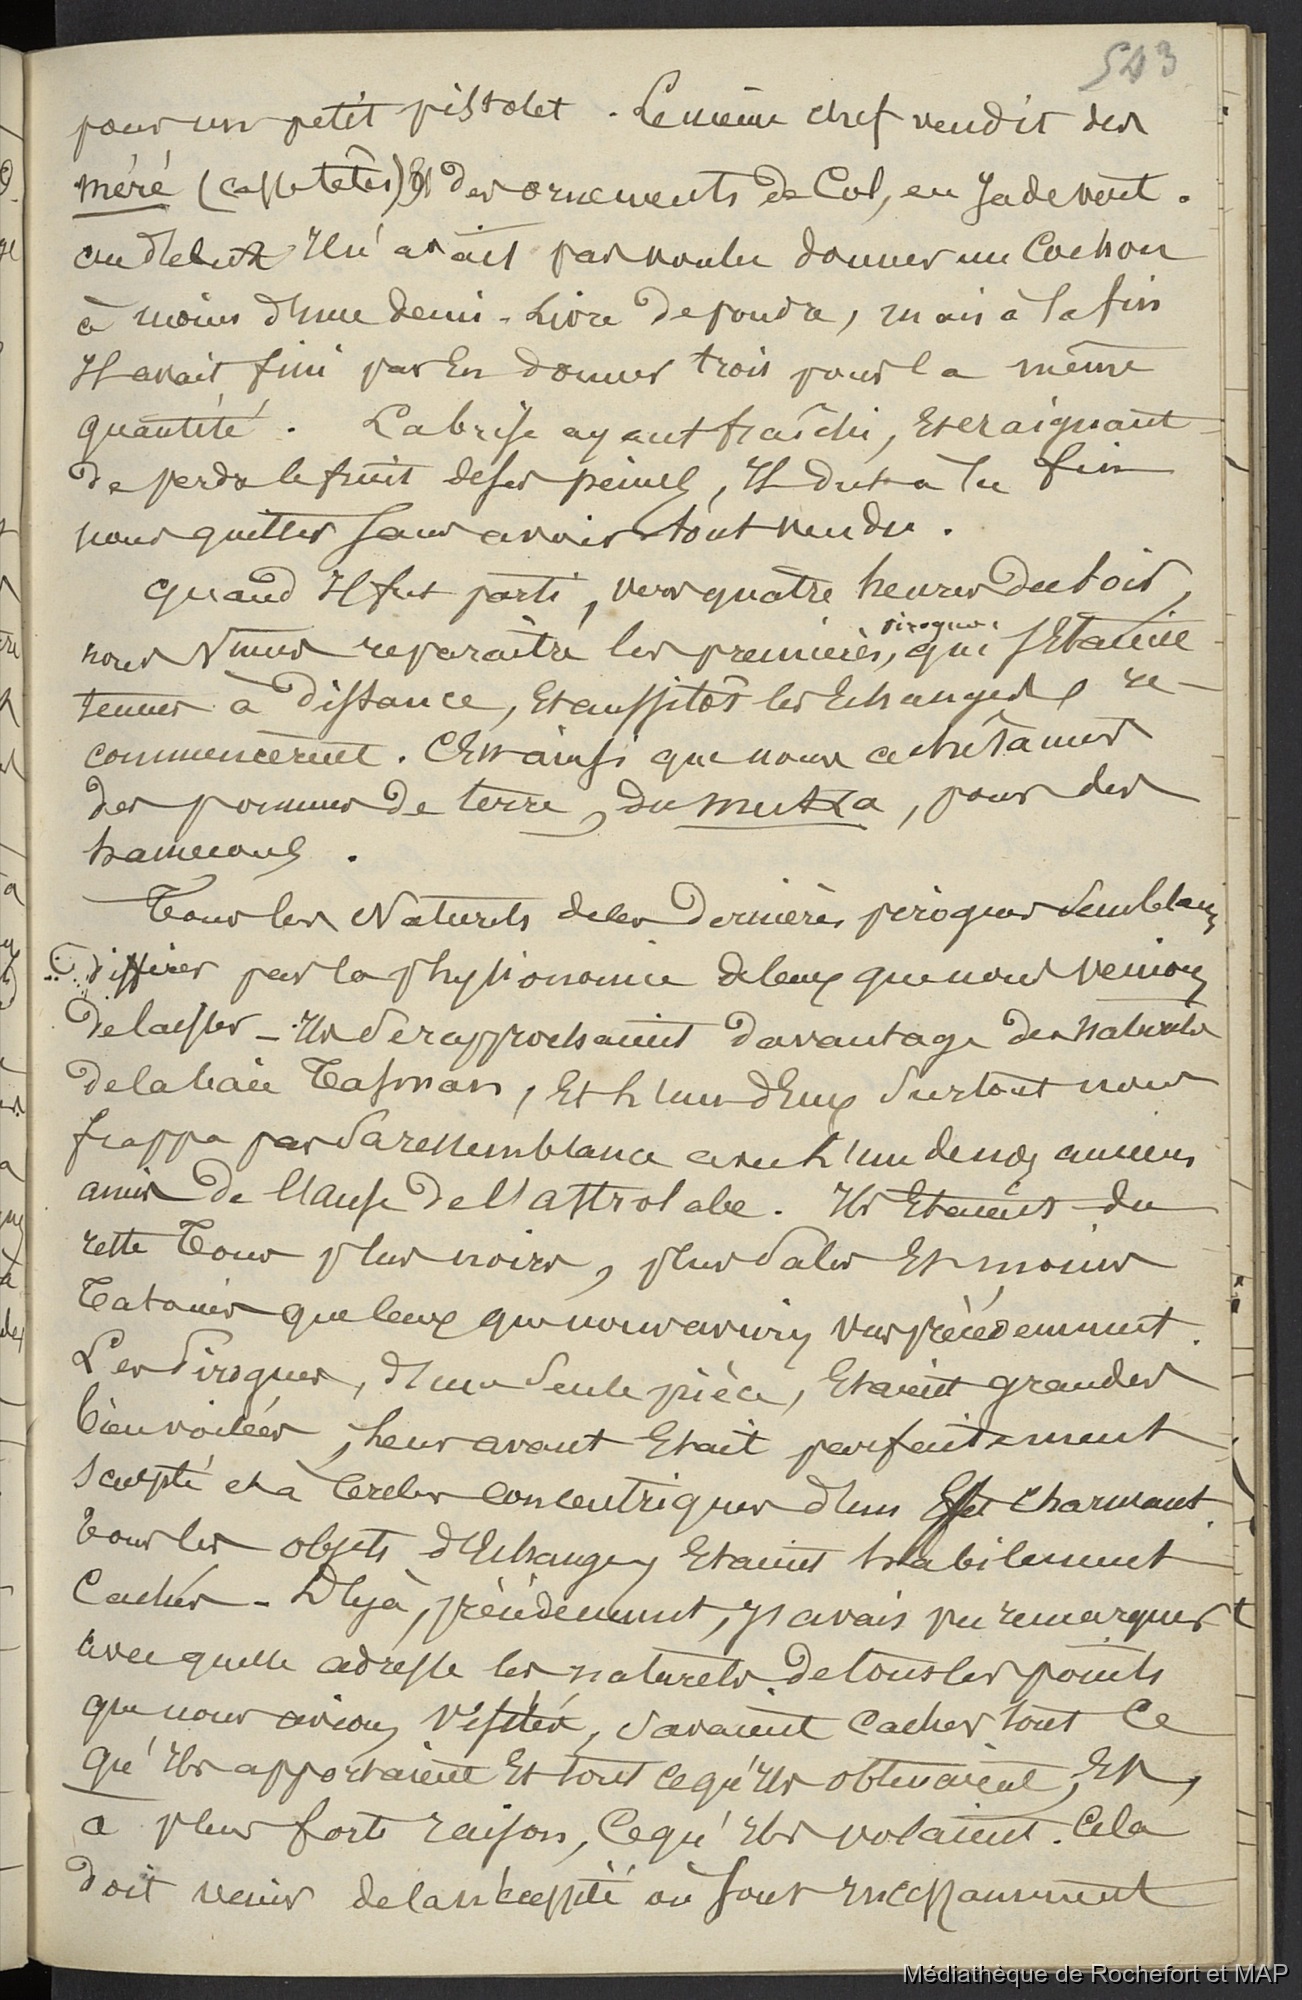 543
pour un petit pistolet. Le même chef vendit des
méré (casse têtes) et des ornements de Col, en Jade vert.
au début Il n'avait pas voulu donner un Cochon
à moins d'une demi-Livre de poudre, mais à la fin
Il avait fini par En donner trois pour la même
quantité. La brise ayant fraîchi, Et craignant
de perdre le fruit de ses peines, Il dut à la fin
nous quitter sans avoir tout vendu.
quand Il fut parti, vers quatre heures du soir,
pirogues
nous vîmes reparaître les premières, qui s'Etaient
tenues à distance, Et aussitôt les Echanges re-
commencèrent. C'Est ainsi que nous achetâmes
des pommes de terre, du muka, pour des
hameçons.
Tous les Naturels de les dernières pirogues semblaient
différer par la physionomie de Ceux que nous venions
de laisser - Ils se rapprochaient davantage des naturels
de la baie Tasman, Et L'un d'Eux surtout nous
frappa par sa ressemblance avec L'un de nos anciens
amis de l'anse de l'astrolabe. Ils Etaient du
reste Tous plus noirs, plus sales Et moins
Tatoués que Ceux que nous avions vus précédemment.
Les Pirogues, d'une seule pièce, Etaient grandes
bien voilées, Leur avant Etait parfaitement
sculpté et à Cercles concentriques d'un Effet charmant.
Tous les objets d'Echanges Etaient habilement
Cachés - Déjà, précédemment, j'avais pu remarquer
avec quelle adresse les naturels de tous les points
que nous avions visités, savaient Cacher tout Ce
qu'Ils apportaient Et tout ce qu'Ils obtenaient, Et,
a plus forte raison, Ce qu'Ils volaient. Cela
doit venir de la nécessité où sont incessamment
Médiathèque de Rochefort et MAP